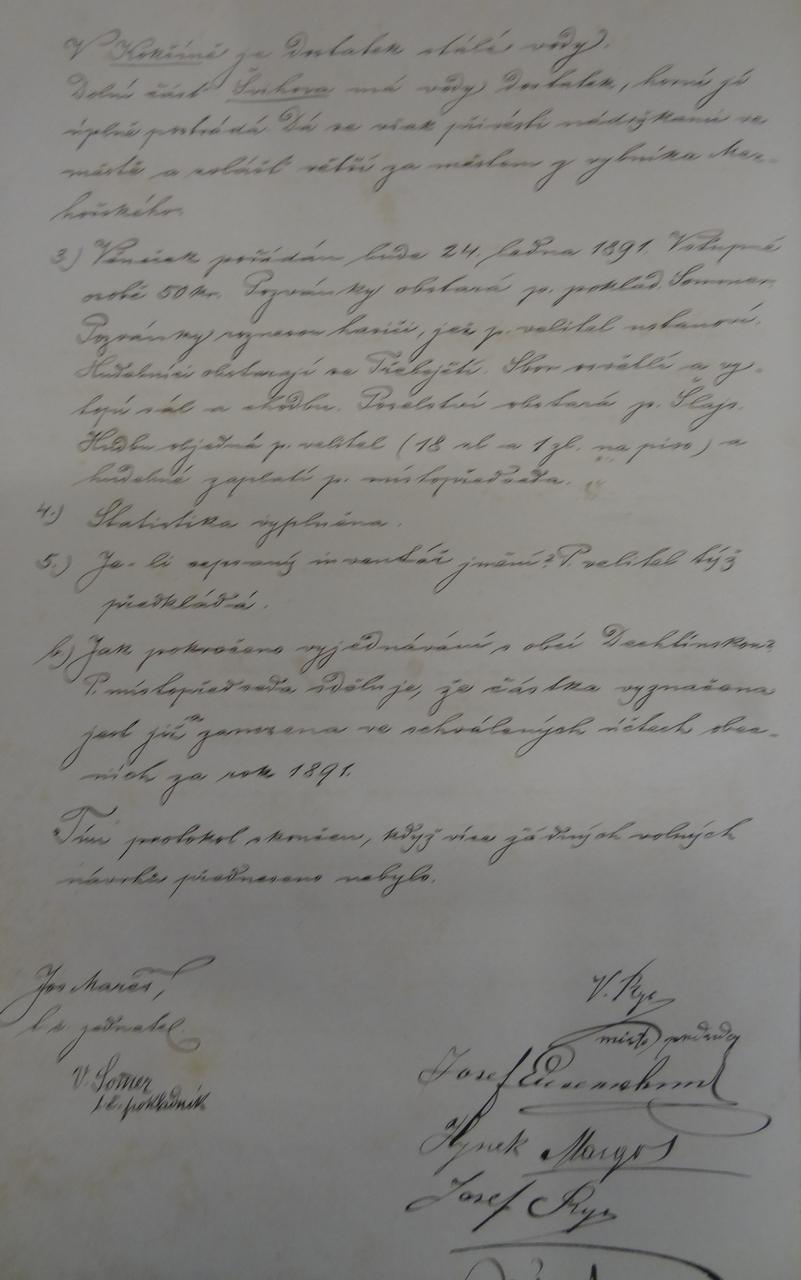 V Kokšíně je dostatek stálé vody.
Dolní část Švihova má vody dostatek, horní jí
úplně postrádá. Dá se však přivésti nádržkami ve
městě a zvlášť větší za městem z rybníka
hořského.
3.) Věneček pořádán bude 24. ledna 1891. Vstupné
osobě 50 kr. Pozvánky obstará p. poklad. Sommer.
Pozvánky roznesou hasiči, jež p. velitel ustanoví.
Hudebníci obstarají se Sbor osvětlí a vy-
topí sál a chodbu. Poselství obstará p. Šlajs.
Hudbu objedná p. velitel (18 zl a 1 zl. na pivo) a
hudebné zaplatí p. místopředseda.
4.) Statistika vyplněna.
5.) Je-li sepsaný inventář jmění? P. velitel týž
předkládá.
6.) Jak pokročeno vyjednávání s obcí Dechtínskou?
P. místopředseda sděluje, že částka vyznačena
jest již zanesena ve schválených účtech obec-
ních za rok 1891.
Tím protokol skončen, když více žádných volných
návrhů předneseno nebylo.
Jos Mareš,
t. č. jednatel.
V. Somer
t. č. pokladník
V. Rys
místopředseda
Josef
Hynek Margos
Josef Rys